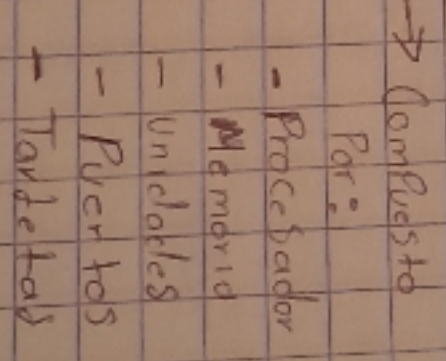 → Compuesto
Por:
- Procesador
- Memoria
- Unidades
- Puertos
- Tarjetas